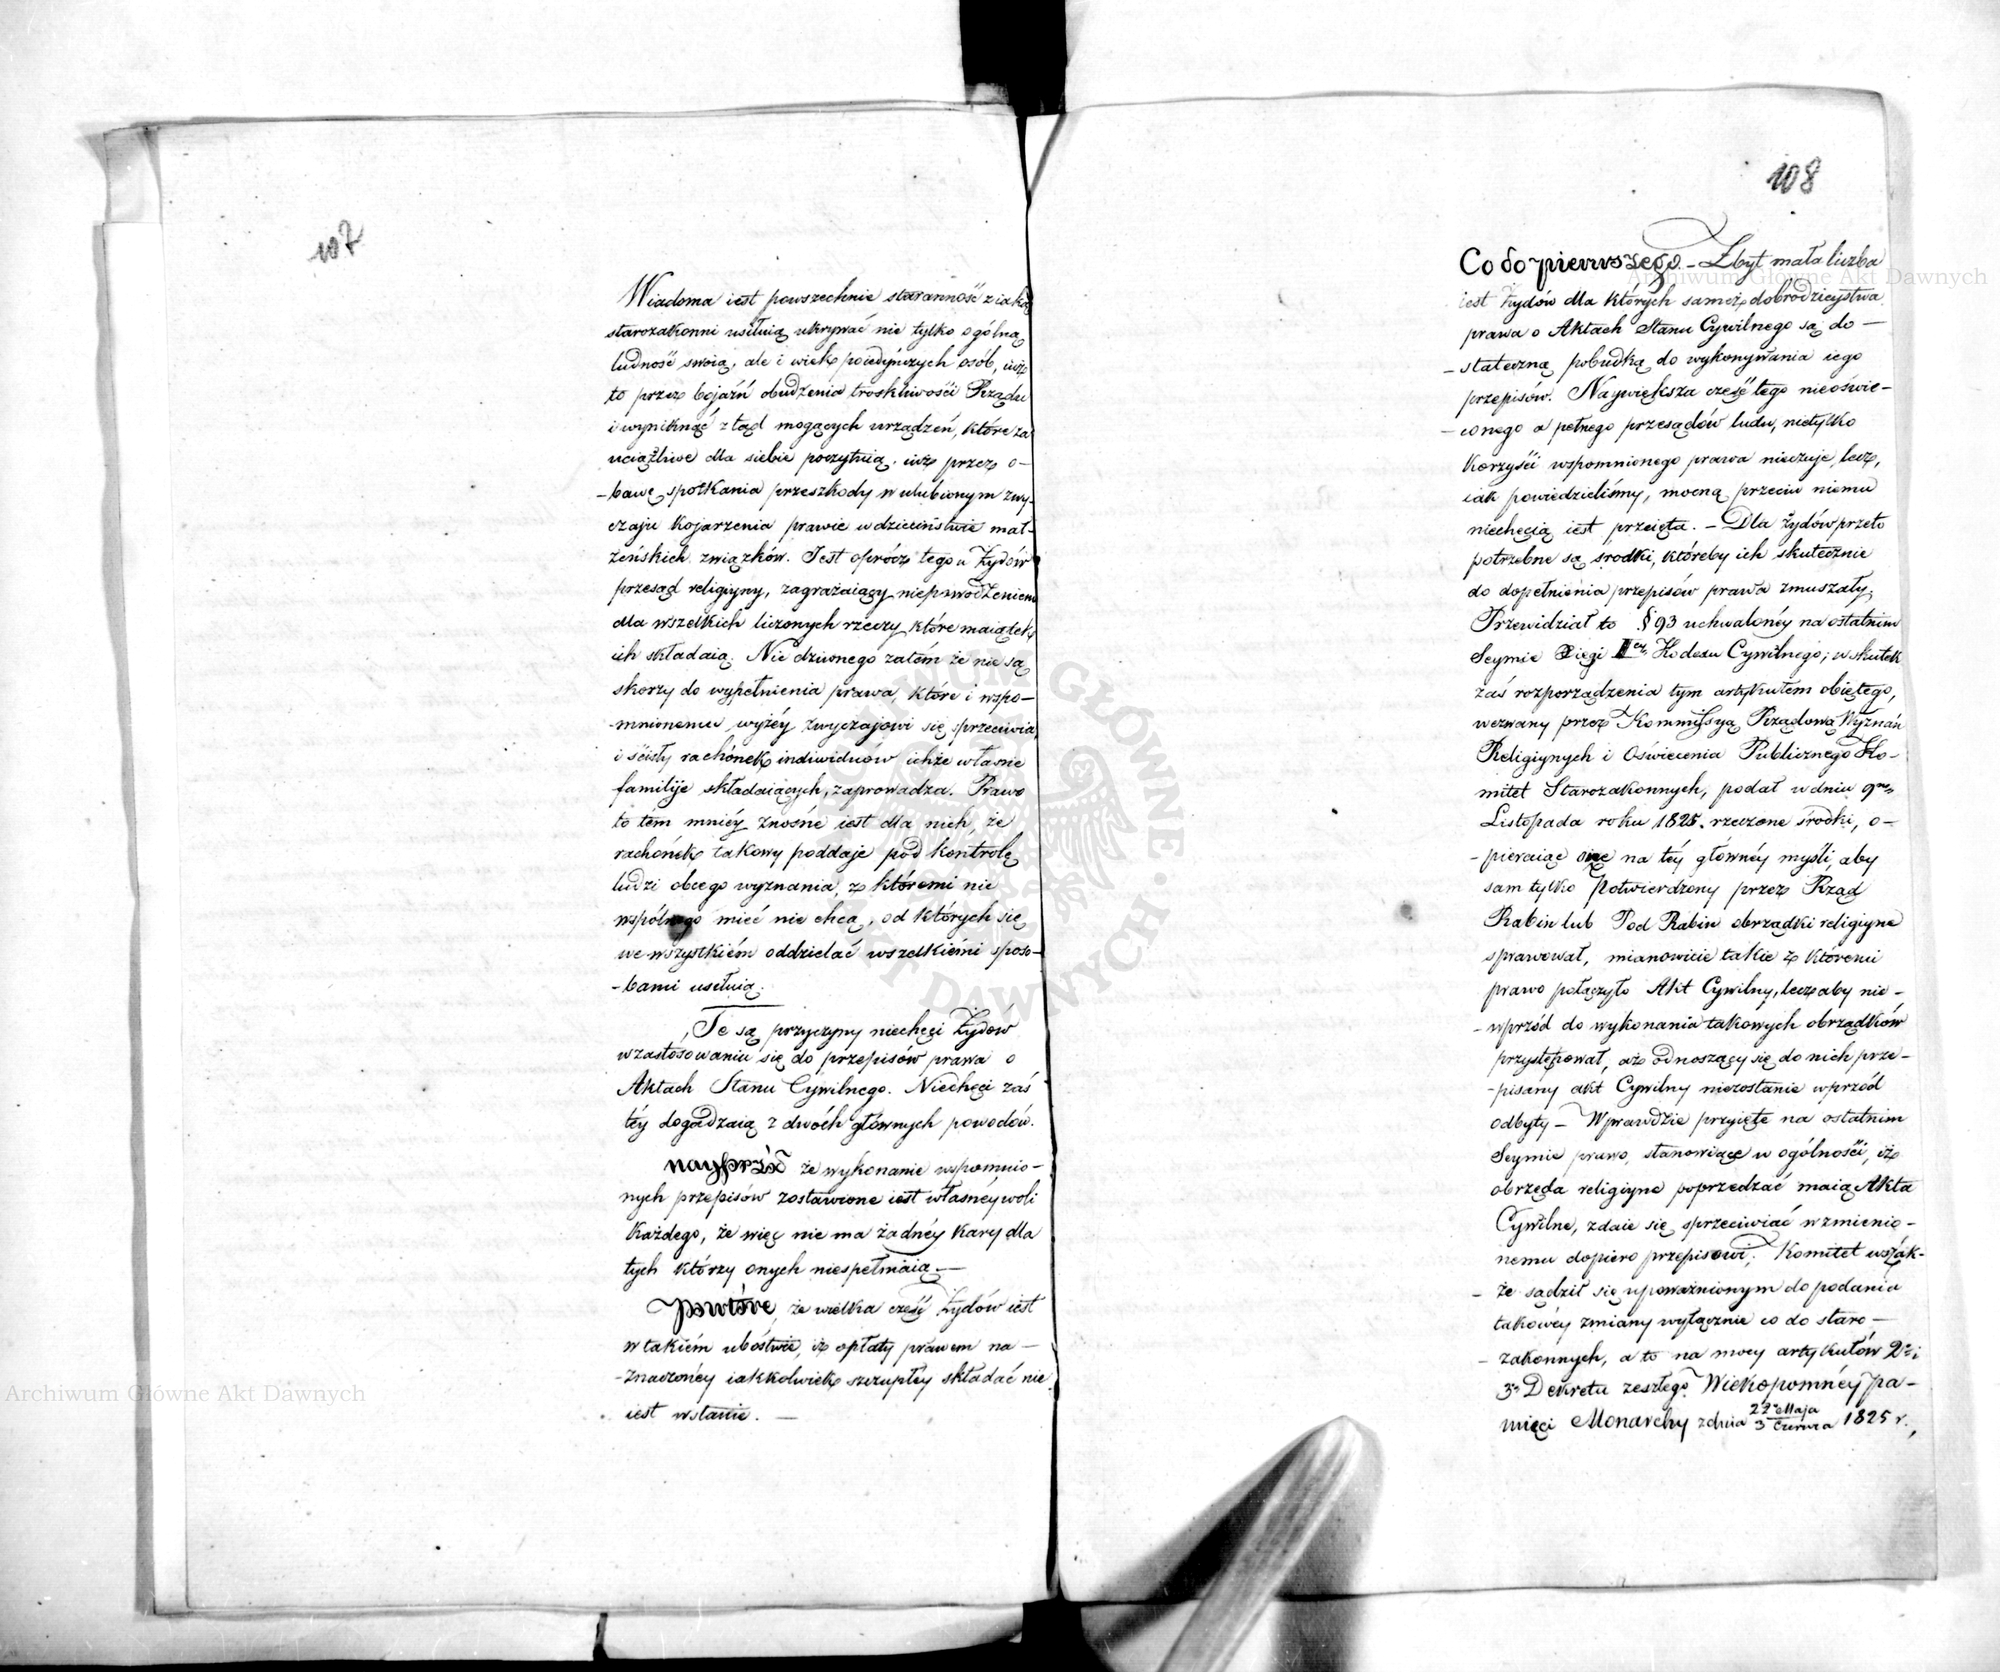 107
Wiadoma iest powszechnie staranność z iaką
starozakonni usiłuią ukrywać nie tylko ogólną
ludność swoią, ale i wiek poiedyńczych osób, iuż
to przez bojaźń obudzenia troskliwości Rządu
i wyniknąć ztąd mogących urządzeń, które za
uciążliwe dla siebie poczytuią, iuż przez o-
-bawę spotkania przeszkody w ulubionym zwy-
czaju kojarzenia prawie w dzieciństwie mał-
żeńskich związków. Jest oprócz tego u Żydów
przesąd religiyny, zagrażaiący niepowodzeniem
dla wszelkich liczonych rzeczy, które maiątek
ich składaią. Nic dziwnego zatém że nie są
skorzy do wypełnienia prawa, które i wspo-
-mnionemu wyżéy zwyczajowi się sprzeciwia,
i ścisły rachónek indiwiduów ichże własne
familije składaiących, zaprowadza. Prawo
to tém mniéy znośne iest dla nich, że
rachónek takowy poddaje pod kontrolę
ludzi obcego wyznania, z któremi nic
wspólnego mieć nie chcą, od których się
we wszystkiém oddzielać wszelkiémi sposo-
-bami usiłuią.
Te są przyczyny niechęci Żydów
w zastósowaniu się do przepisów prawa o
Aktach Stanu Cywilnego. Niechęci zaś
téy dogadzaią z dwóch głównych powodów.
naprzód że wykonanie wspomnio-
nych przepisów zostawione iest własnéy woli
każdego, że więc nie ma żadnéy kary dla
tych którzy onych niespełniaią. —
powtóre, że wielka część Żydów iest
w takiém ubóstwie, iż opłaty prawem na —
-znaczónéy iakkolwiek szczupłéy składać nie
iest wstanie. —
108
Co do pierwszego. - Zbyt mała liczba
iest Żydów dla których sameż dobrodzieystwa
prawa o Aktach Stanu Cywilnego są do —
-stateczną pobudką do wykonywania iego
przepisów. Naywiększa część tego nieoświe-
-conego a pełnego przesądów ludu, nietylko
korzyści wspomnionego prawa nieczuje, lecz,
iak powiedzieliśmy, mocną przeciw niemu
niechęcią iest przeięta. - Dla Żydów przeto
potrzebne są środki, któreby ich skutecznie
do dopełnienia przepisów prawa zmuszały.
Przewidział to § 93 uchwalonéy na ostatnim
Seymie Xięgi Iéy Kodexu Cywilnego; w skutek
zaś rozporządzenia tym artykułem obiętego,
wezwany przez Kommissyą Rządową Wyznań
Religiynych i Oświecenia Publicznego Ko-
mitet Starozakonnych, podał w dniu 9m
Listopada roku 1825. rzeczone środki, o-
-pieraiąc się na téy głównéy myśli, aby
sam tylko Potwierdzony przez Rząd
Rabin lub Pod Rabin obrządki religiyne
sprawował, mianowicie takie z któremi
prawo połączyło Akt Cywilny, lecz aby nie -
-wprzód do wykonania takowych obrządków
przystępował, aż odnoszący się do nich prze-
-pisany akt Cywilny niezostanie wprzód
odbyty - Wprawdzie przyięte na ostatnim
Seymie prawo, stanowiące w ogólności, iż
obrzęda religiyne poprzedzać maią Akta
Cywilne, zdaie się sprzeciwiać wzmienio-
nemu dopiero przepisowi; Komitet wszak-
- że sądził się upoważnionym do podania
takowéy zmiany wyłącznie co do staro —
- zakonnych, a to na mocy artykułów 2o i
3o Dekretu zeszłego Wiekopomnéy pa-
mięci Monarchy z dnia 22 Maja / 3 Czerwca 1825 r.,
Archiwum Główne Akt Dawnych
Archiwum Główne Akt Dawnych
ARCHIWUM GŁÓWNE · AKT DAWNYCH ·